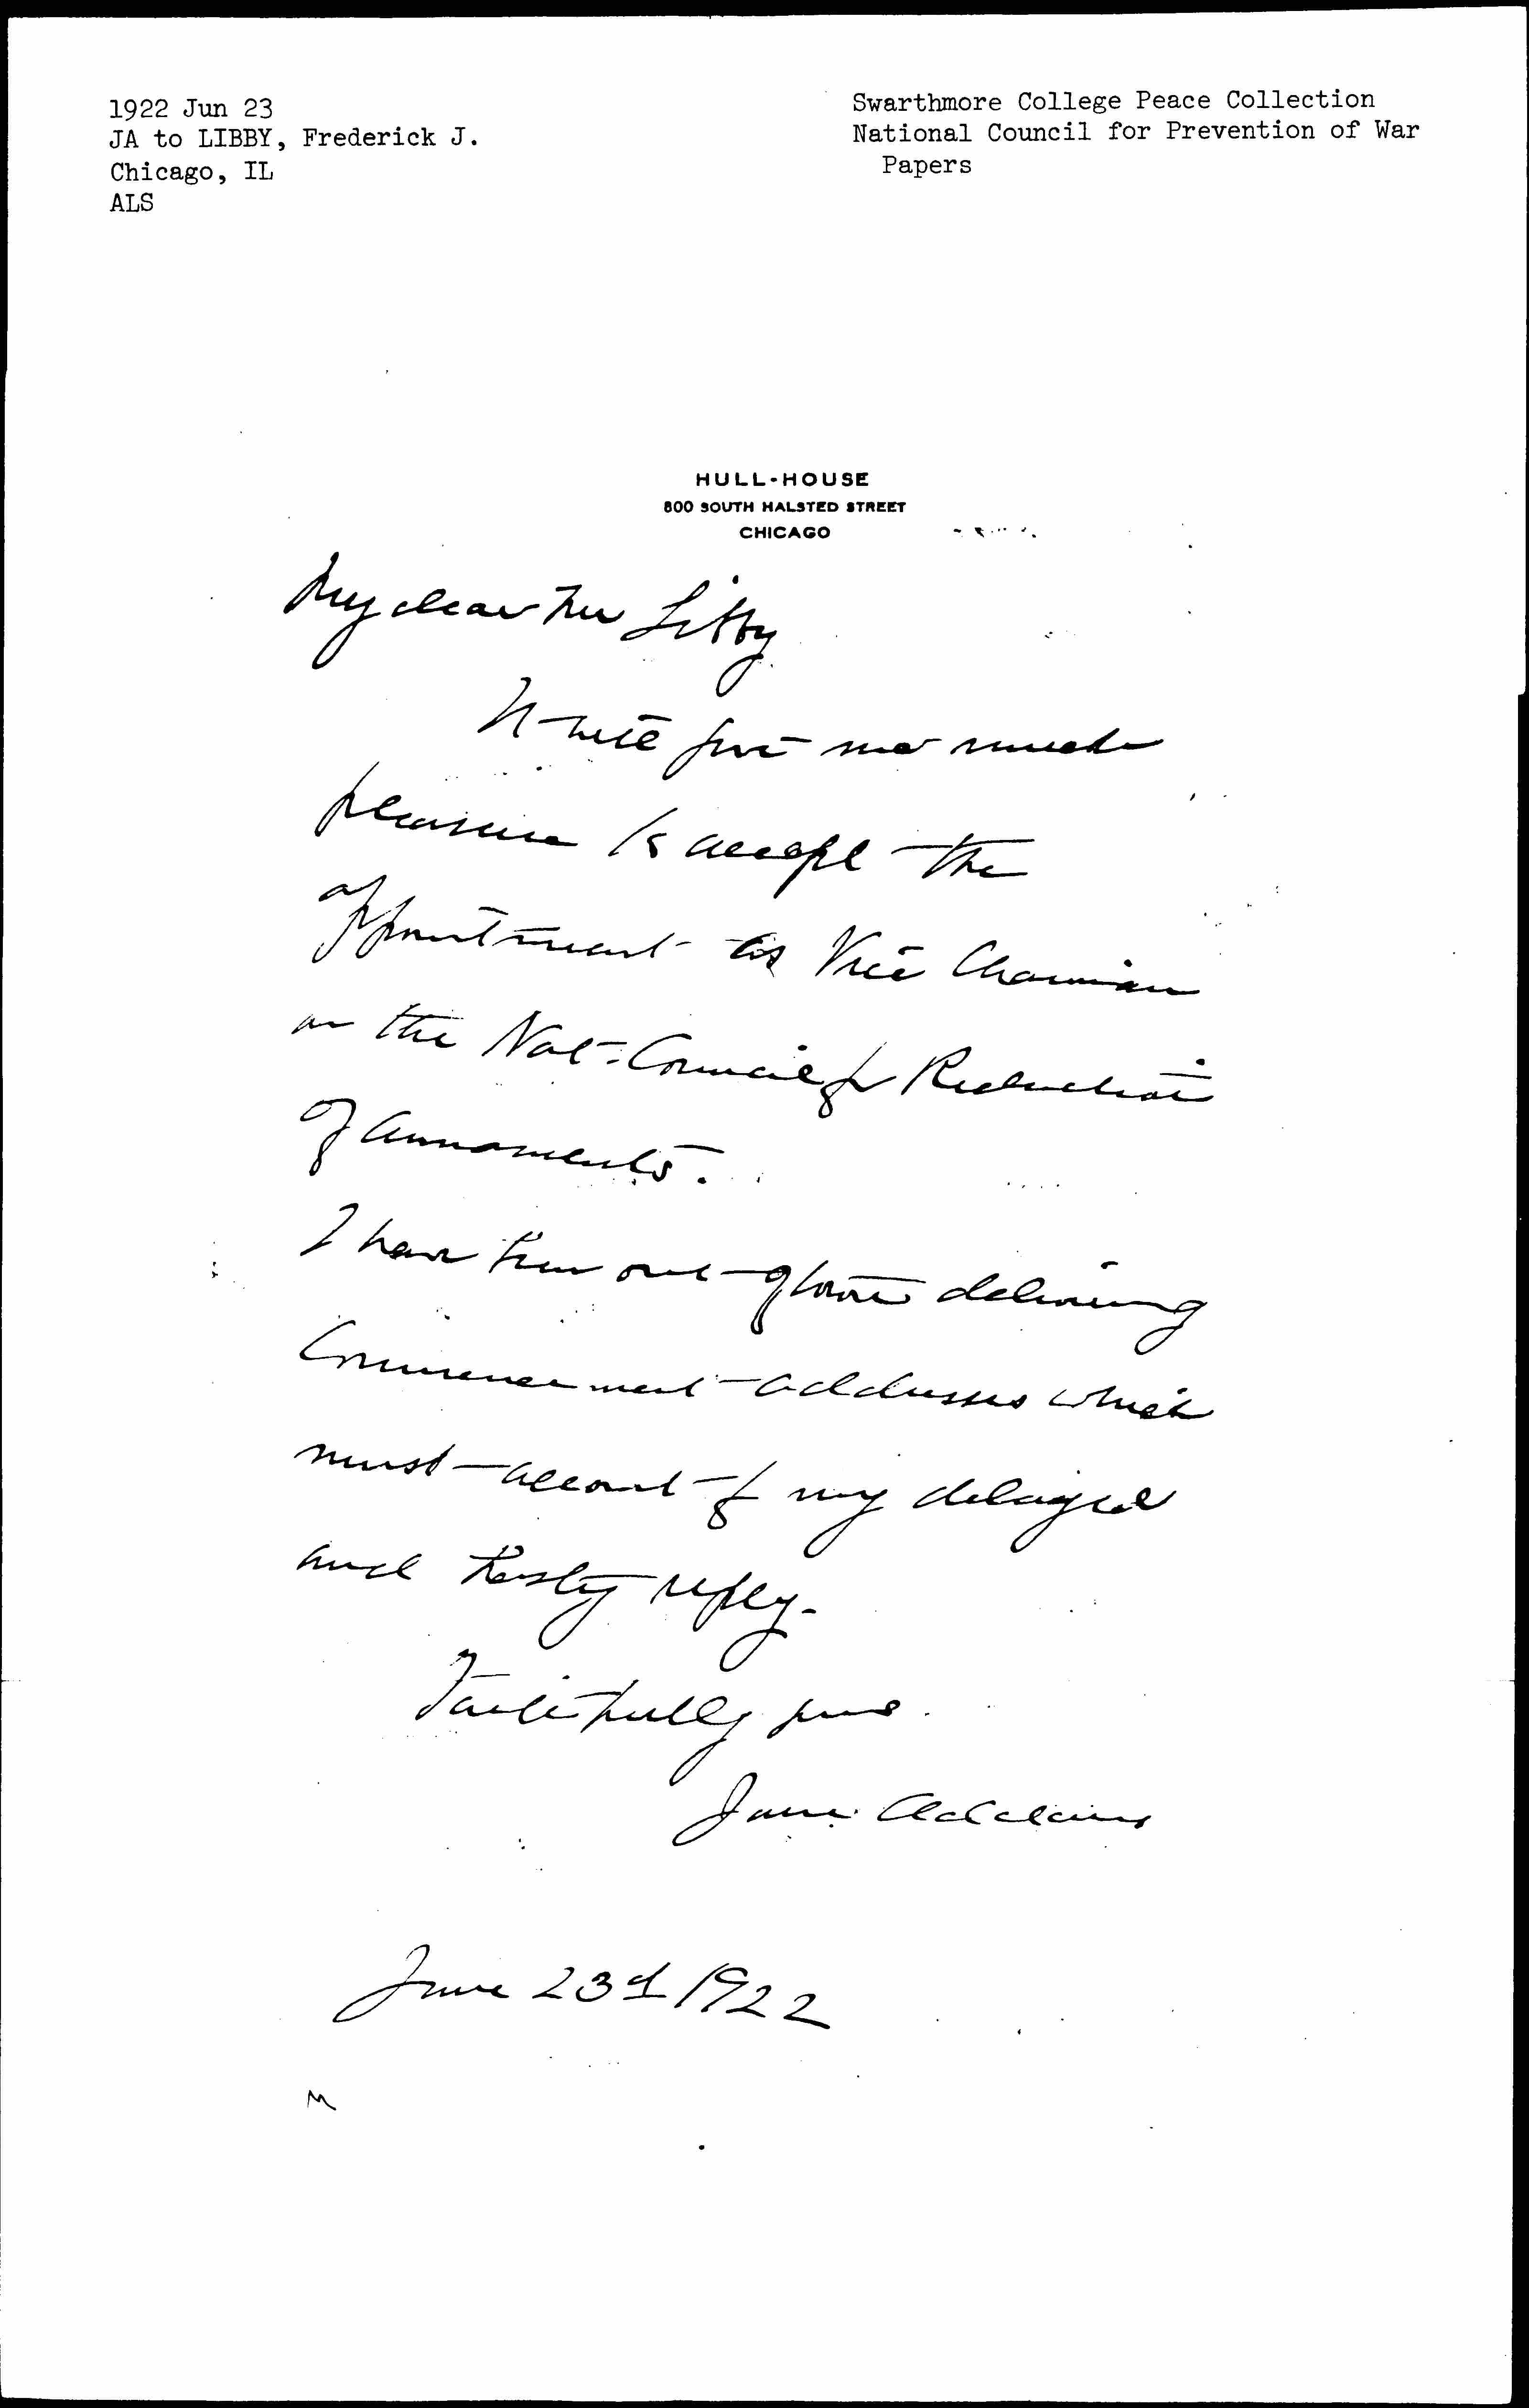 1922 Jun 23
JA to LIBBY, Frederick J.
Chicago, IL
ALS
Swarthmore College Peace Collection
National Council for Prevention of War
Papers
HULL-HOUSE
800 SOUTH HALSTED STREET
CHICAGO
My dear Mr Libby
It will give me much
pleasure to accept the
appointment as Vice Chairman
on the Nat. Council for Reduction
of Armaments.
I have been out of town delivering
Commencement addresses which
must account for my delayed
and hasty reply.
Faithfully yours
Jane Addams
June 23d 1922